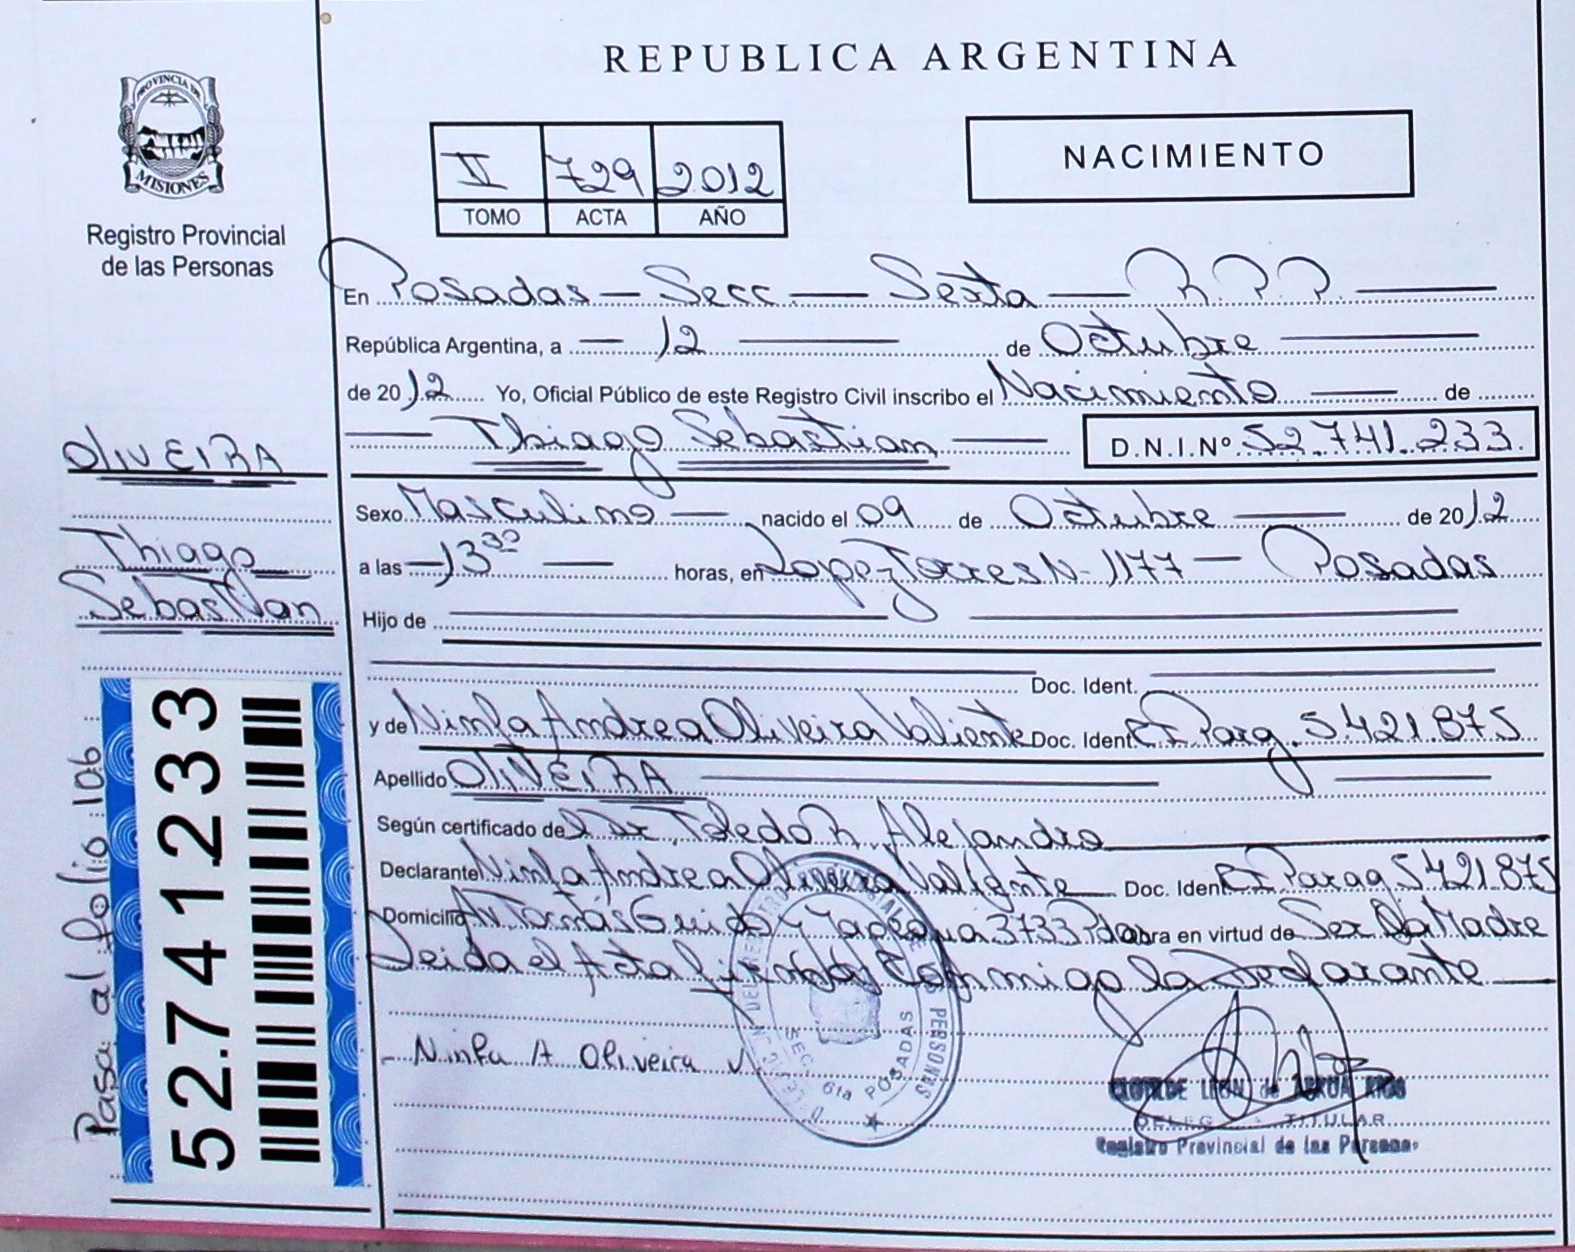 REPUBLICA ARGENTINA
PROVINCIA DE
MISIONES
Registro Provincial
de las Personas
II 729 2012
TOMO ACTA AÑO
NACIMIENTO
En Posadas — Secc — Sexta — R.P.P. —
República Argentina, a — 12 — de Octubre —
de 2012 Yo, Oficial Público de este Registro Civil inscribo el Nacimiento — de
— Thiago Sebastian — D.N.I.Nº 52.741.233.
Sexo Masculino — nacido el 09 de Octubre — de 2012
a las — 13 30 — horas, en Lopez Torres N- 1177 — Posadas
Hijo de
Doc. Ident.
y de Ninfa Andrea Oliveira Valiente Doc. Ident. CI Parag. 5.421.875
Apellido OLIVEIRA
Según certificado de Dr Toledo R. Alejandro
Declarante Ninfa Andrea Oliveira Valiente Doc. Ident. CI Parag 5421.875
Domicilio Av. Tomás Guido y Yapeyú 3733 Pdas obra en virtud de Ser La Madre
Leida el Acta la firma Conmigo la Declarante —
Ninfa A Oliveira V
OLIVEIRA
Thiago
Sebastian
Pasa al folio 106
52.741.233
SEC. 6ta POSADAS
CLOTILDE LEON de
DELEG TITULAR
Registro Provincial de las Personas